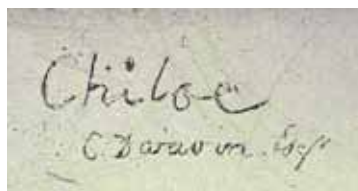 Chiloe
C. Darwin. Esqr